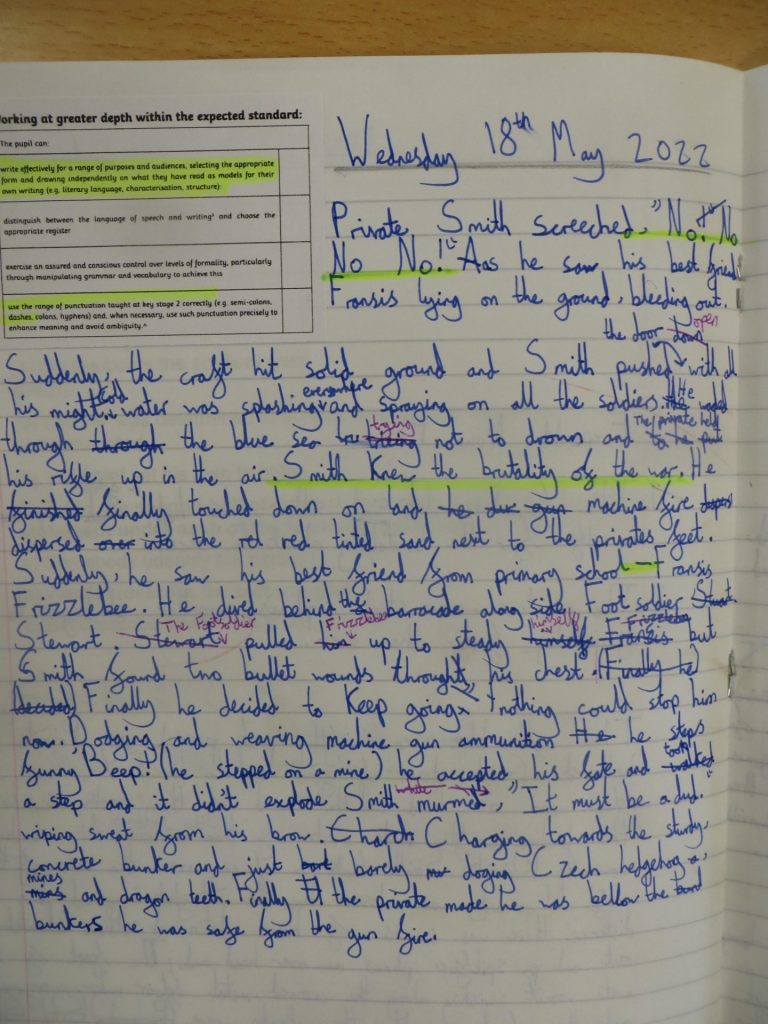 orking at greater depth within the expected standard:
The pupil can:
write effectively for a range of purposes and audiences, selecting the appropriate
form and drawing independently on what they have read as models for their
own writing (e.g. literary language, characterisation, structure);
distinguish between the language of speech and writing³ and choose the
appropriate register
exercise an assured and conscious control over levels of formality, particularly
through manipulating grammar and vocabulary to achieve this
use the range of punctuation taught at key stage 2 correctly (e.g. semi-colons,
dashes, colons, hyphens) and, when necessary, use such punctuation precisely to
enhance meaning and avoid ambiguity.^
Wednesday 18th May 2022
Private Smith screeched, "No! No
No No!" Aas he saw his best friend
Fransis lying on the ground, bleeding out.
the door down open
Suddenly, the craft hit solid ground and Smith pushed with all
his might. Cold water was splashing everywhere and spraying on all the soldiers. the He waded
through through the blue sea tru tricing trying not to drown and The private held
his rifle up in the air. Smith knew the brutality of the war. He
finished finally touched down on land, he duc gun machine fire
dispersed over into the rel red tinted sand nest to the privates feet.
Suddenly, he saw his best friend from primary school - Fransis
Frizzlebee. He dived behind the barrocade along side Foot soldier Stuart
Stewart. Stewart The Foot soldier pulled him Frizzlebee up to steady himself himself Fransis Frizzlebee but
Smith found two bullet wounds throught his chest. (Finally he)
decided) Finally he decided to Keep going, nothing could stop him
now. Dodging and weaving machine gun ammunition He he steps
funny "Beep!" (he stepped on a mine) he accepted his fate and walked took
a step and it didn't explode Smith murmed, while "It must be a dud."
wriping sweat from his brow. Charch Charging towards the sturdy,
concrete bunker and just bare barely doging Czech hedgehog,
mines and dragon teeth. Finally the private made he was bellow the
bunkers he was safe from the gun fire.